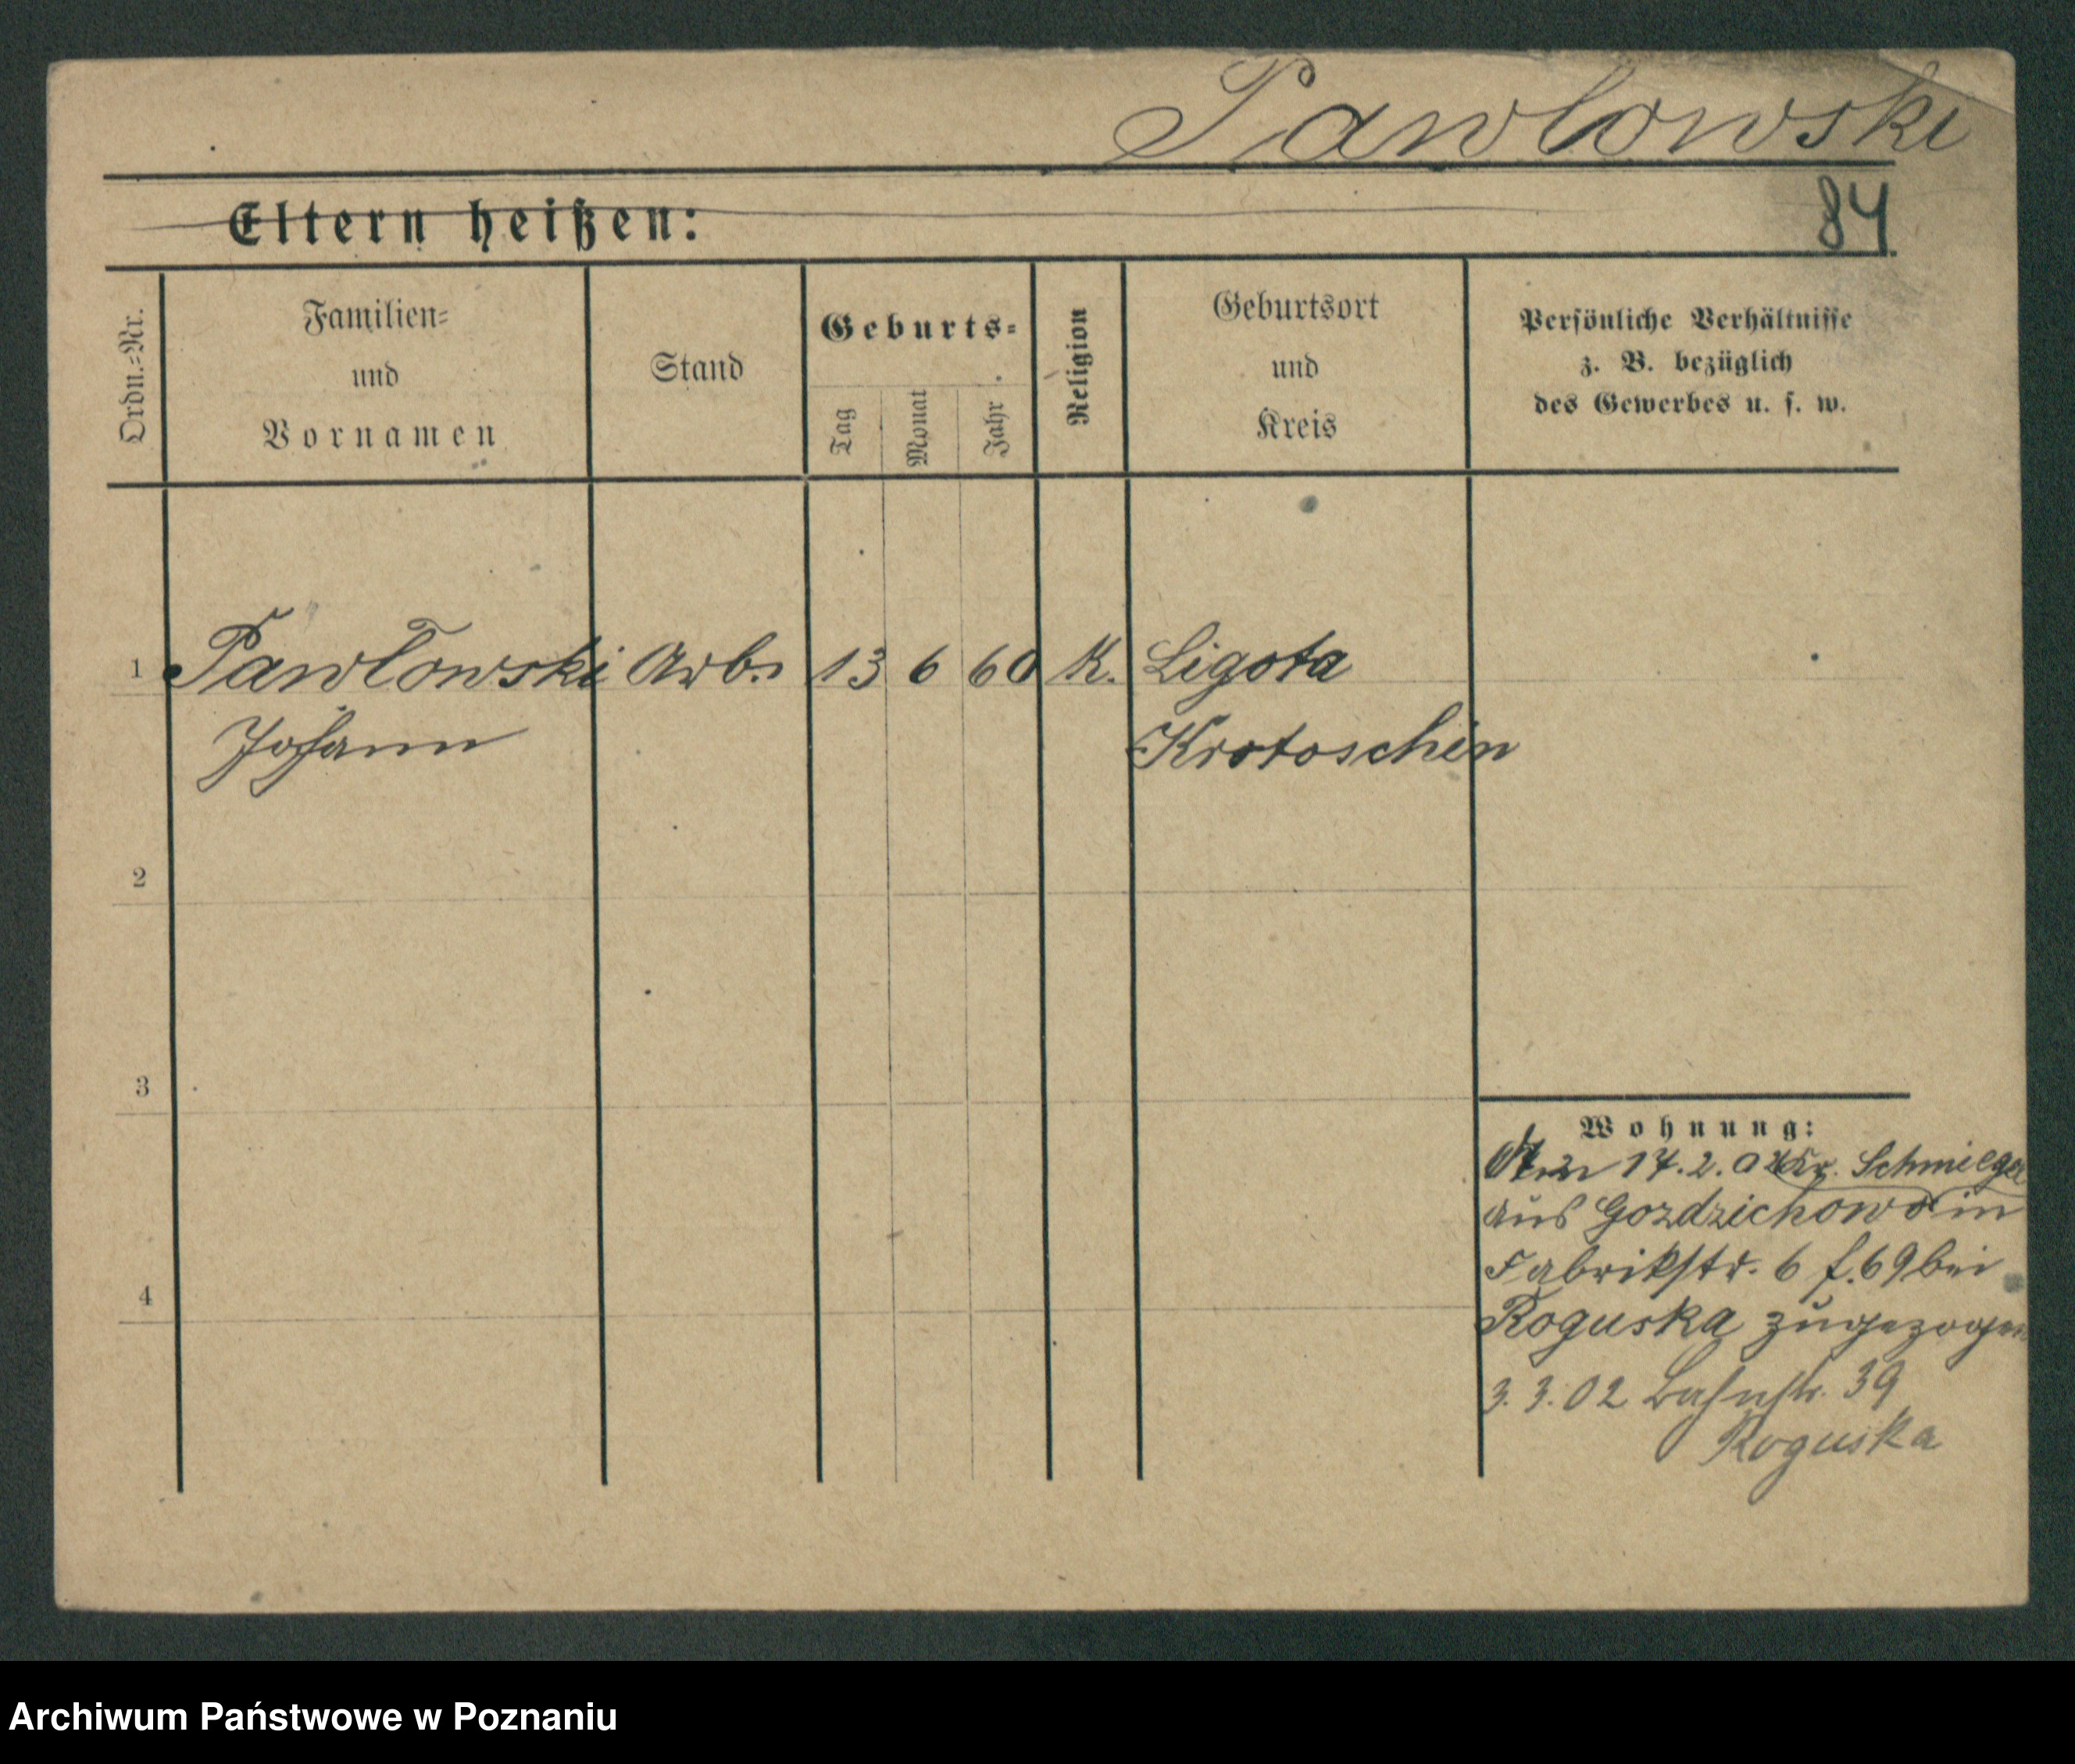 Pawlowski
84
Eltern heißen:
Ordn.=Nr.
Familien=
und
Vornamen
Stand
Geburts=
Tag
Monat
Jahr
Religion
Geburtsort
und
Kreis
Persönliche Verhältnisse
z. B. bezüglich
des Gewerbes u. s. w.
1 Pawlowski Arb. 13 6 60 K. Ligota
Johann Krotoschin
2
3
4
Wohnung:
14.2.02 Kr. Schmiegel
aus Gozdzichowo in
Fabrikstr. 6 f. 69 bei
Roguska zugezogen
3.3.02 Bahnstr. 39
Roguska
Archiwum Państwowe w Poznaniu